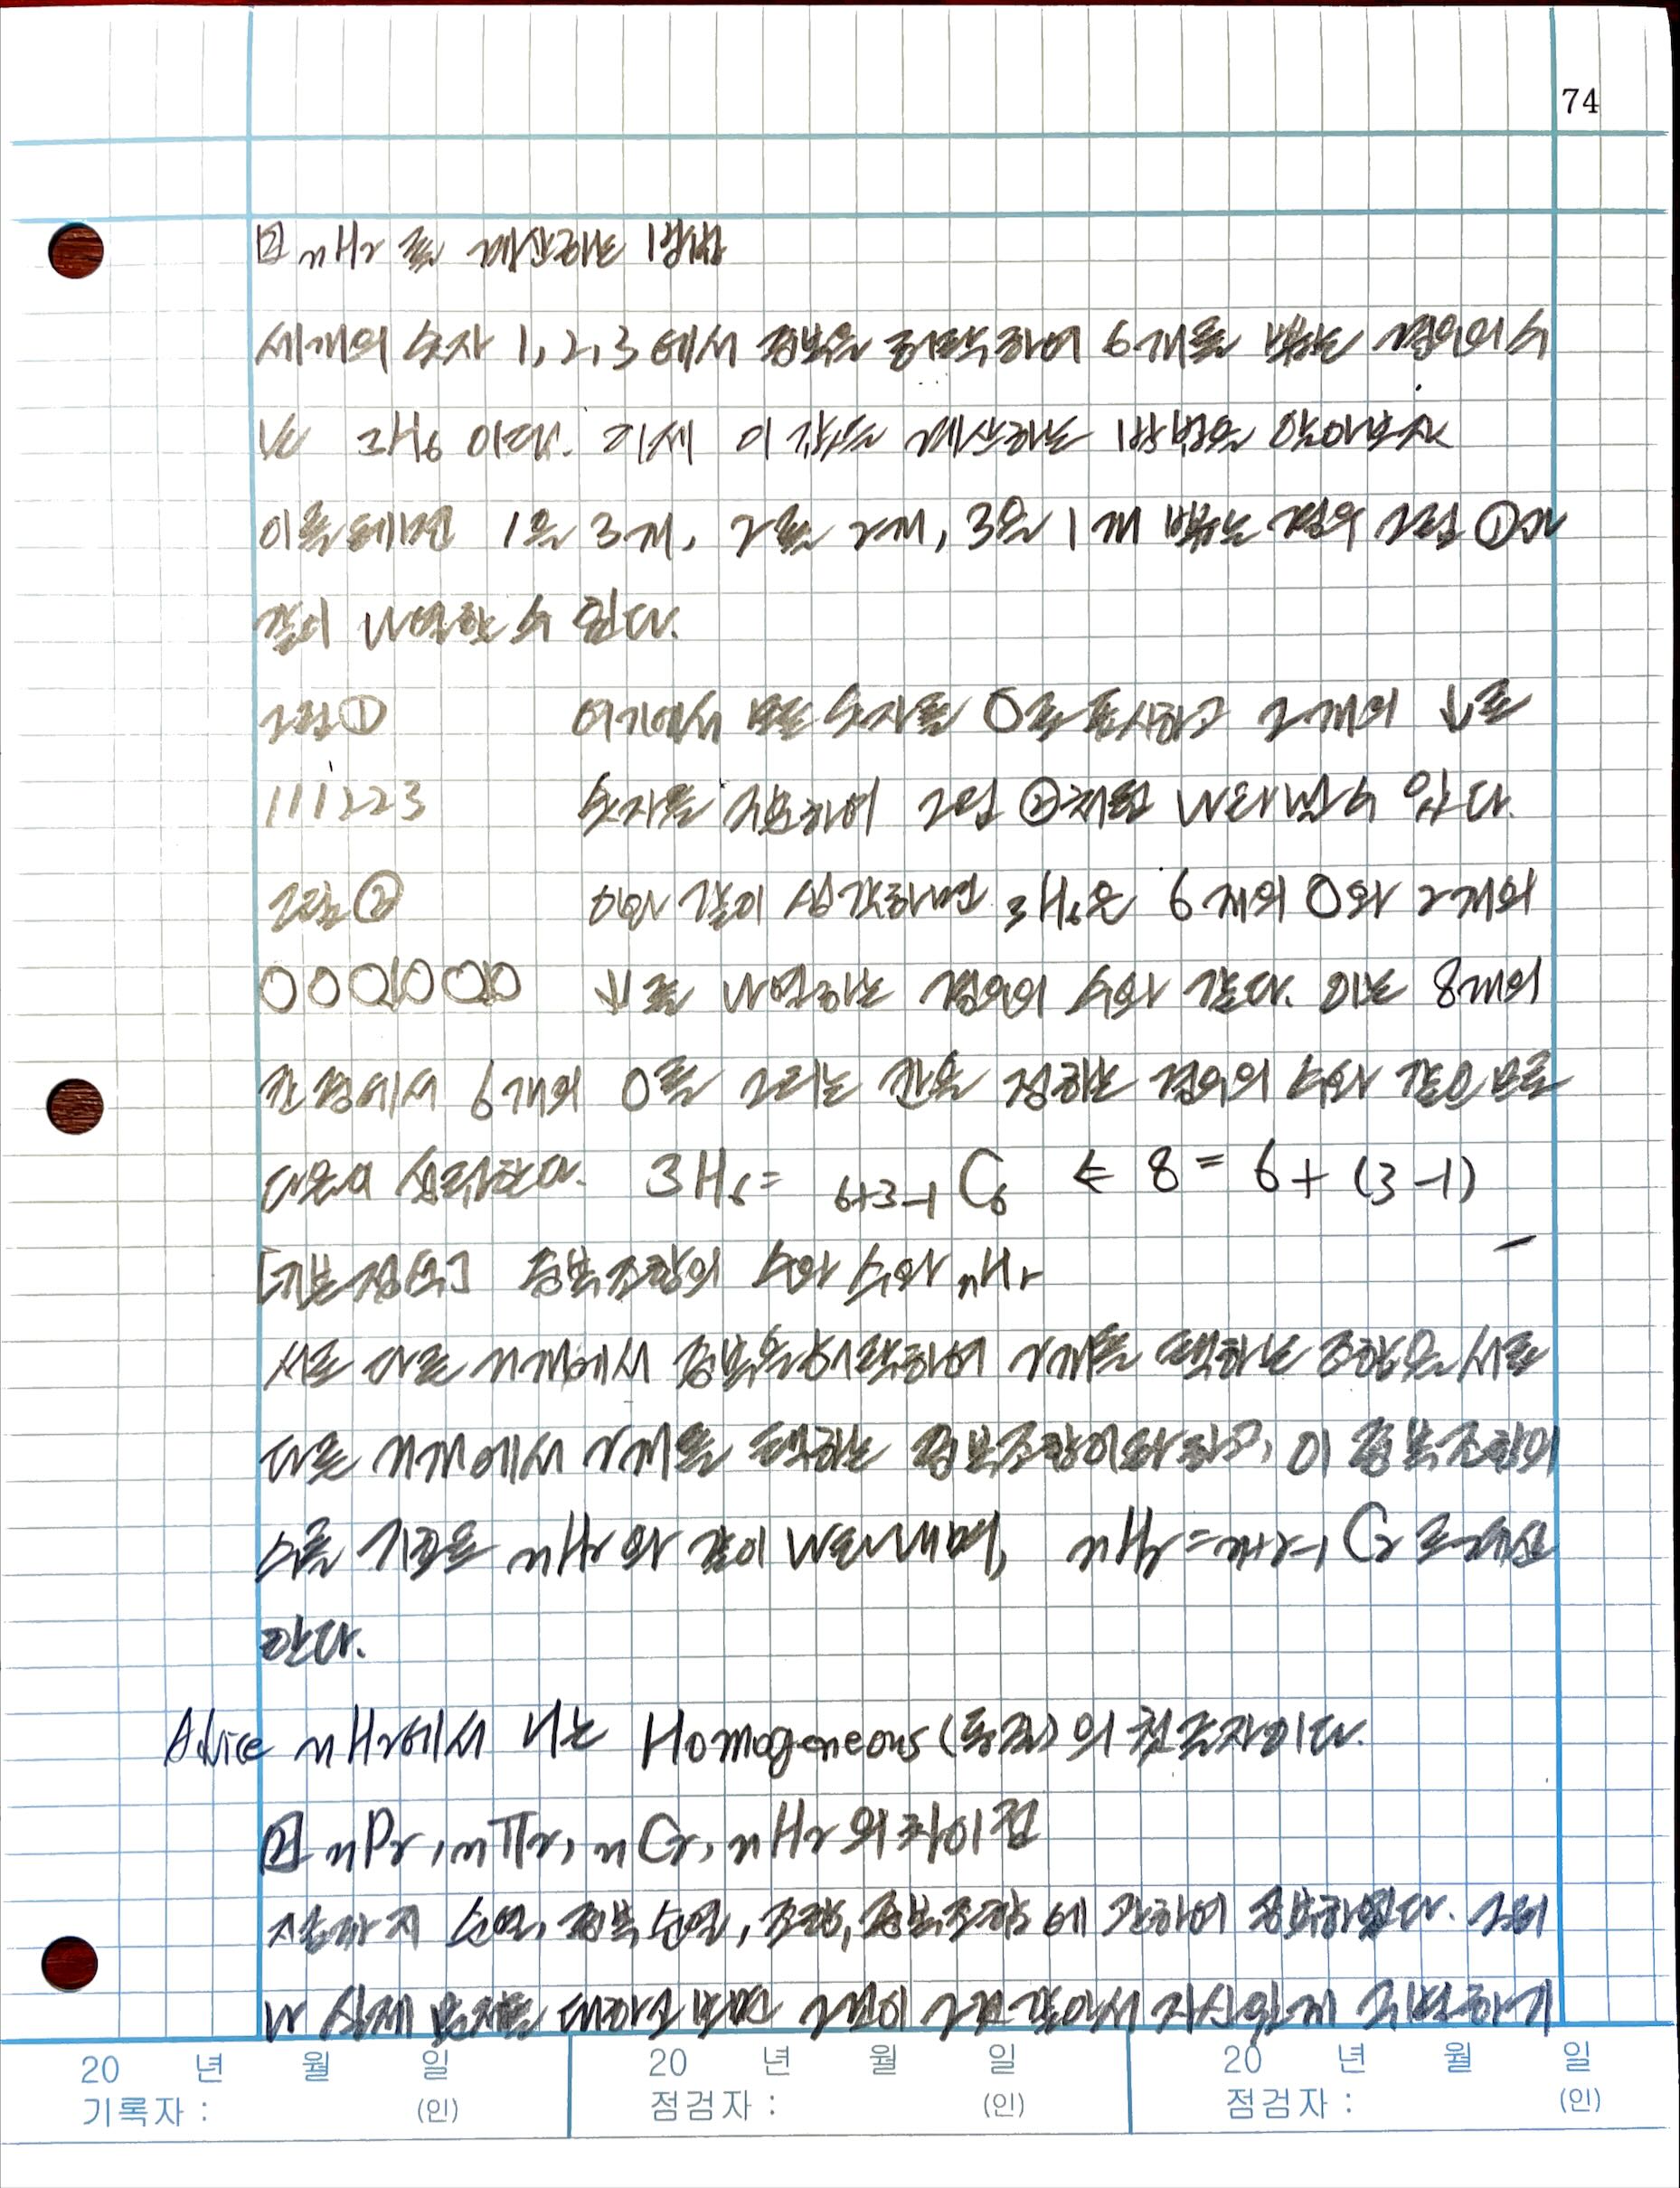 74
② nHr를 계산하는 방법
세개의 숫자 1, 2, 3에서 중복을 허락하여 6개를 뽑는 경우의 수
는 3H6 이다. 이제 이 값을 계산하는 방법을 알아보자
이를테면 1을 3개, 2를 2개, 3을 1개 뽑는 경우 그림 ①과
같이 나열할 수 있다.
그림① 여기에서 모든 숫자를 O로 표시하고 2개의 ↓로
111223 숫자를 구분하여 그림 ②처럼 나타낼 수 있다.
그림② 이와 같이 생각하면 3H6은 6개의 O와 2개의
OOO↓OO↓O ↓를 나열하는 경우의 수와 같다. 이는 8개의
칸 중에서 6개의 O를 그리는 칸을 정하는 경우의 수와 같으므로
다음이 성립한다. 3H6 = 6+3-1C6 ← 8 = 6 + (3-1)
[기본정석] 중복조합의 수와 수와 nHr
서로 다른 n개에서 중복을 허락하여 r개를 택하는 조합을 서로
다른 n개에서 r개를 택하는 중복조합이라 하고, 이 중복조합의
수를 기호로 nHr와 같이 나타내며, nHr = n+r-1Cr로 계산
한다.
Advice nHr에서 H는 Homogeneous(동질)의 첫글자이다.
② nPr, nΠr, nCr, nHr의 차이점
지금까지 순열, 중복순열, 조합, 중복조합에 관하여 공부하였다. 그러
나 실제 문제를 대하고 보면 그것이 그것 같아서 자신있게 구별하기
20 년 월 일 20 년 월 일 20 년 월 일
기록자 : (인) 점검자 : (인) 점검자 : (인)